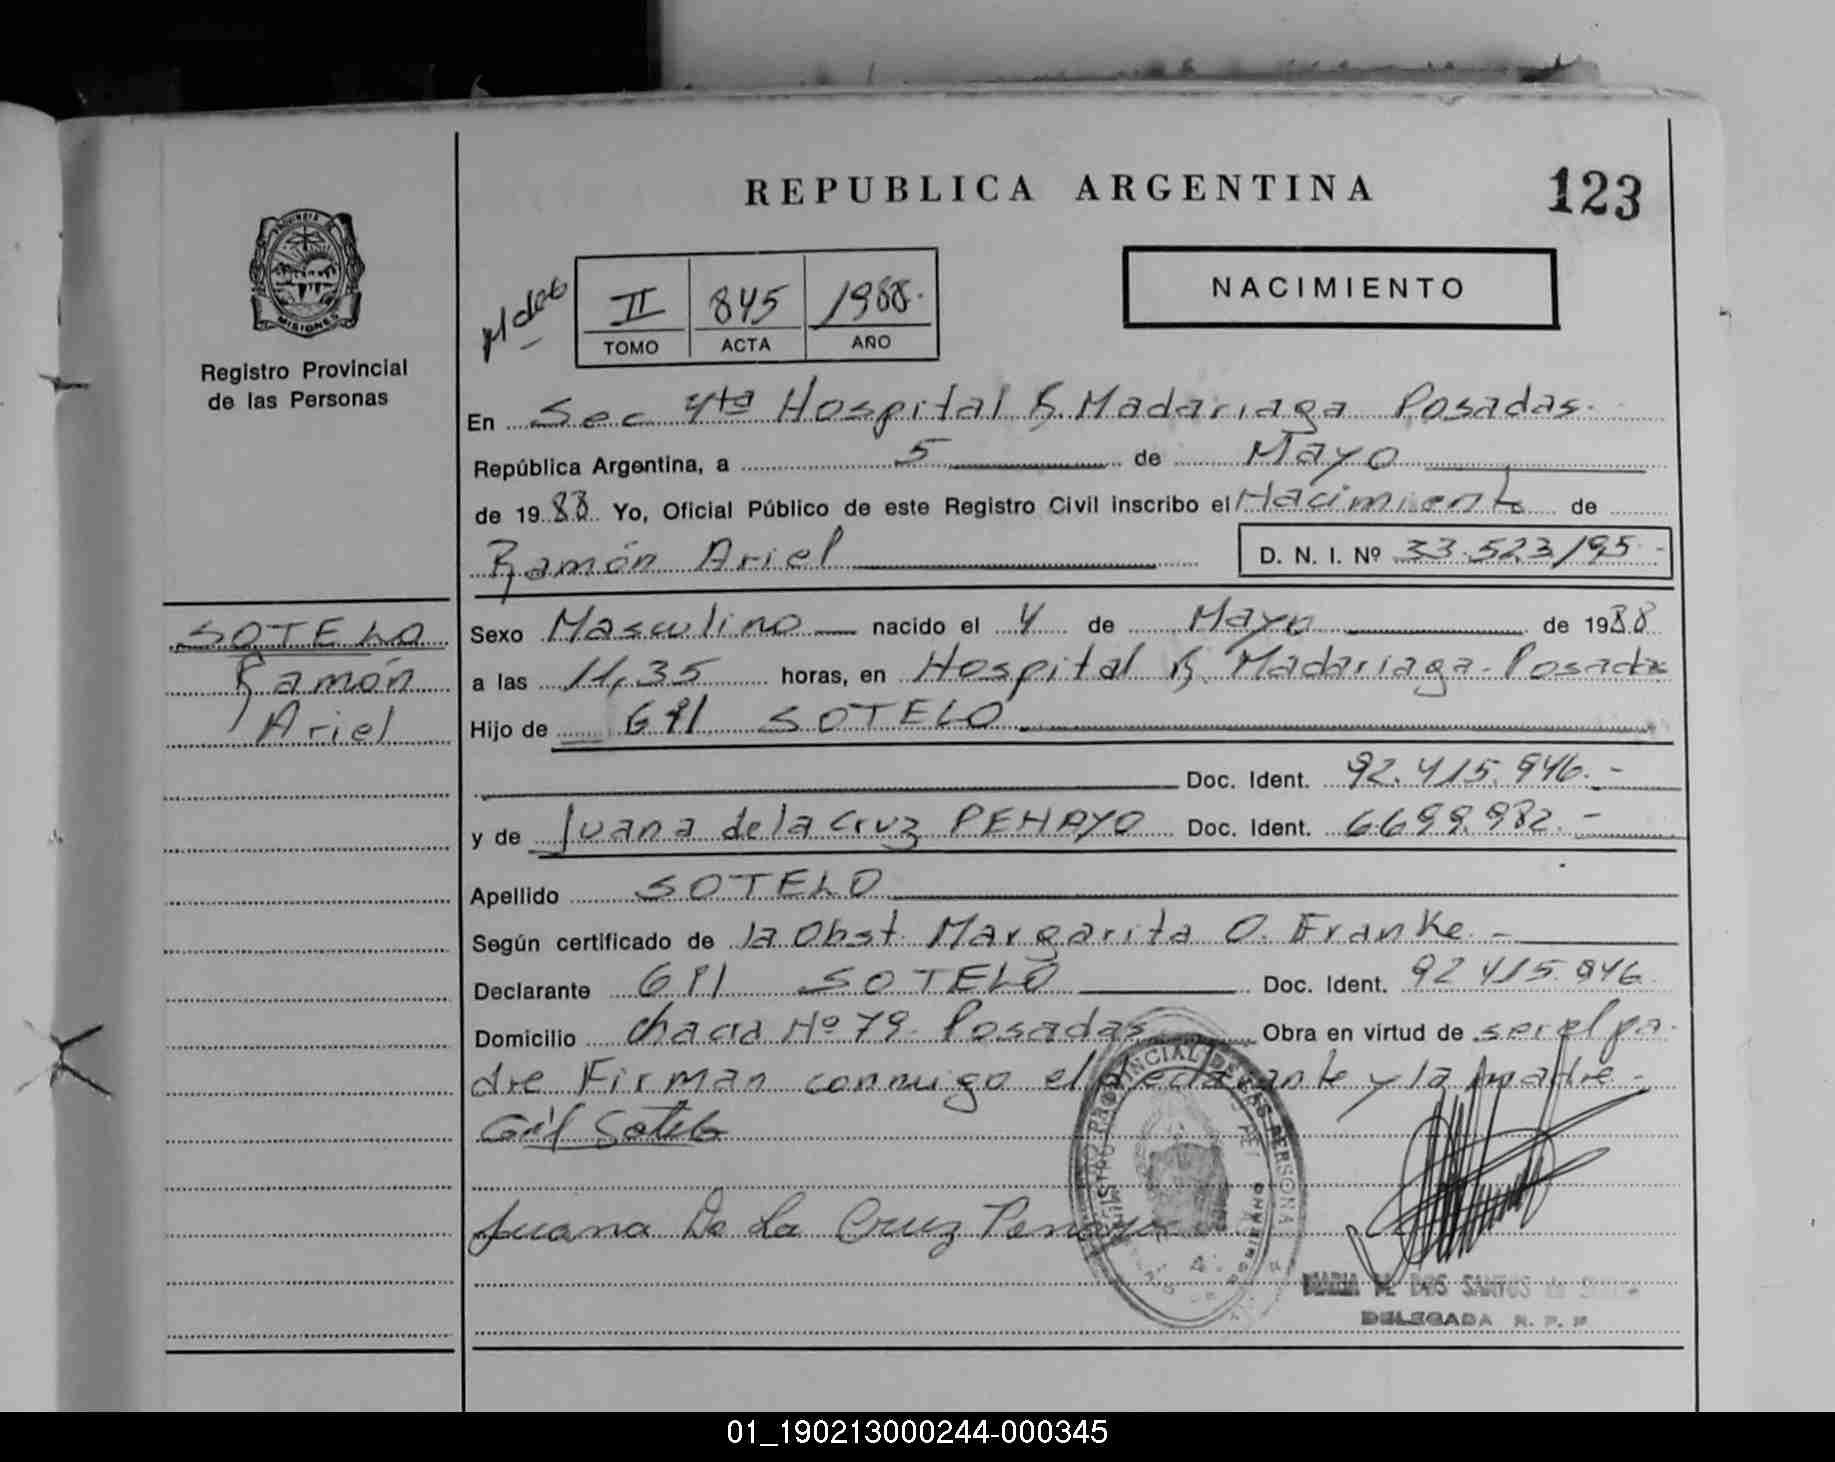 REPUBLICA ARGENTINA
123
PROVINCIA
MISIONES
Registro Provincial
de las Personas
II 845 1988.
TOMO ACTA AÑO
NACIMIENTO
En Sec 4ta Hospital R. Madariaga Posadas.
República Argentina, a 5 de Mayo
de 1988 Yo, Oficial Público de este Registro Civil inscribo el Nacimiento de
Ramón Ariel D. N. I. Nº 33.523195.-
SOTELO
Ramón
Ariel
Sexo Masculino nacido el 4 de Mayo de 1988
a las 11,35 horas, en Hospital R. Madariaga-Posadas
Hijo de Gil SOTELO
Doc. Ident. 92.415.946.-
y de Juana de la Cruz PENAYO Doc. Ident. 6699.982.-
Apellido SOTELO
Según certificado de la Obst. Margarita O. Franke.-
Declarante Gil SOTELO Doc. Ident. 92 415.946.
Domicilio chacra Nº 79. Posadas Obra en virtud de ser el pa-
dre Firman conmigo el declarante y la madre.-
Gil Sotelo
Juana De La Cruz Penayo
REGISTRO PROVINCIAL DE LAS PERSONAS
DOS SANTOS de
DELEGADA R. P. P.
01_190213000244-000345